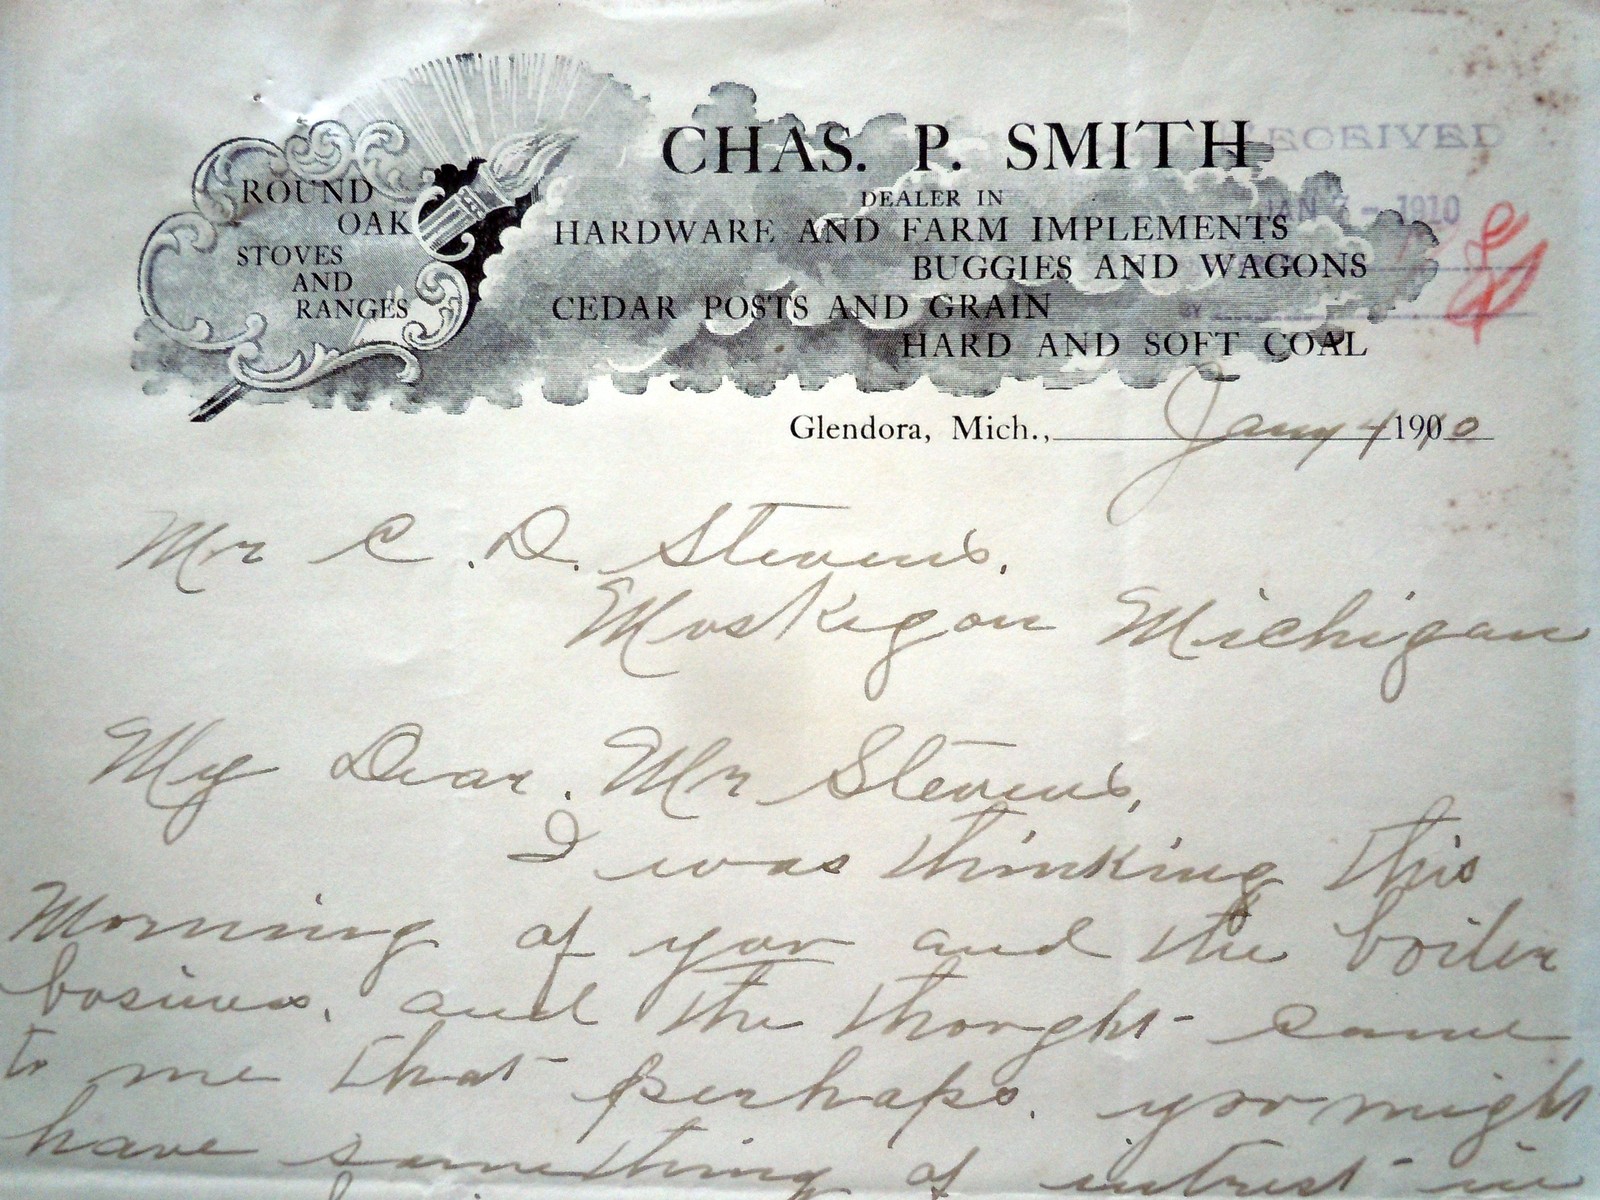 ROUND
OAK
STOVES
AND
RANGES
CHAS. P. SMITH
DEALER IN
HARDWARE AND FARM IMPLEMENTS
BUGGIES AND WAGONS
CEDAR POSTS AND GRAIN
HARD AND SOFT COAL
RECEIVED
JAN 7 - 1910
BY
Glendora, Mich., Jany 4 1910
Mr C. D. Stevens.
Muskegon Michigan
My Dear. Mr Stevens,
I was thinking this
Morning of you and the boiler
business. and the thought came
to me that perhaps. you might
have something of intrest in